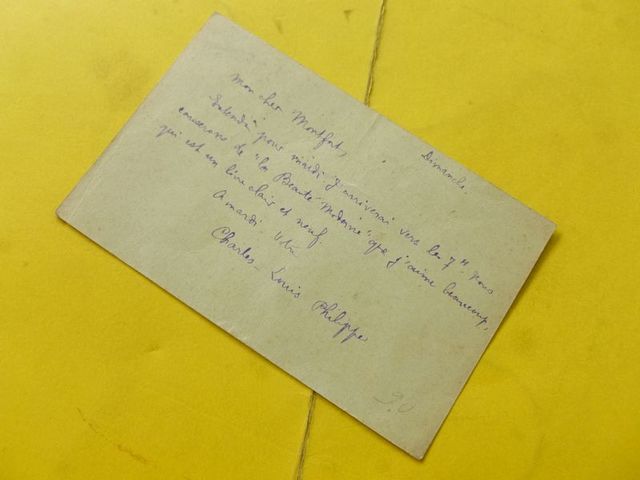 Dimanche.
Mon cher Montfort,
Entendu pour mardi j'arriverai vers les 7h Nous
causerons de "la Beauté Moderne" que j'aime beaucoup,
qui est un livre clair et neuf
A mardi Votre
Charles-Louis Philippe